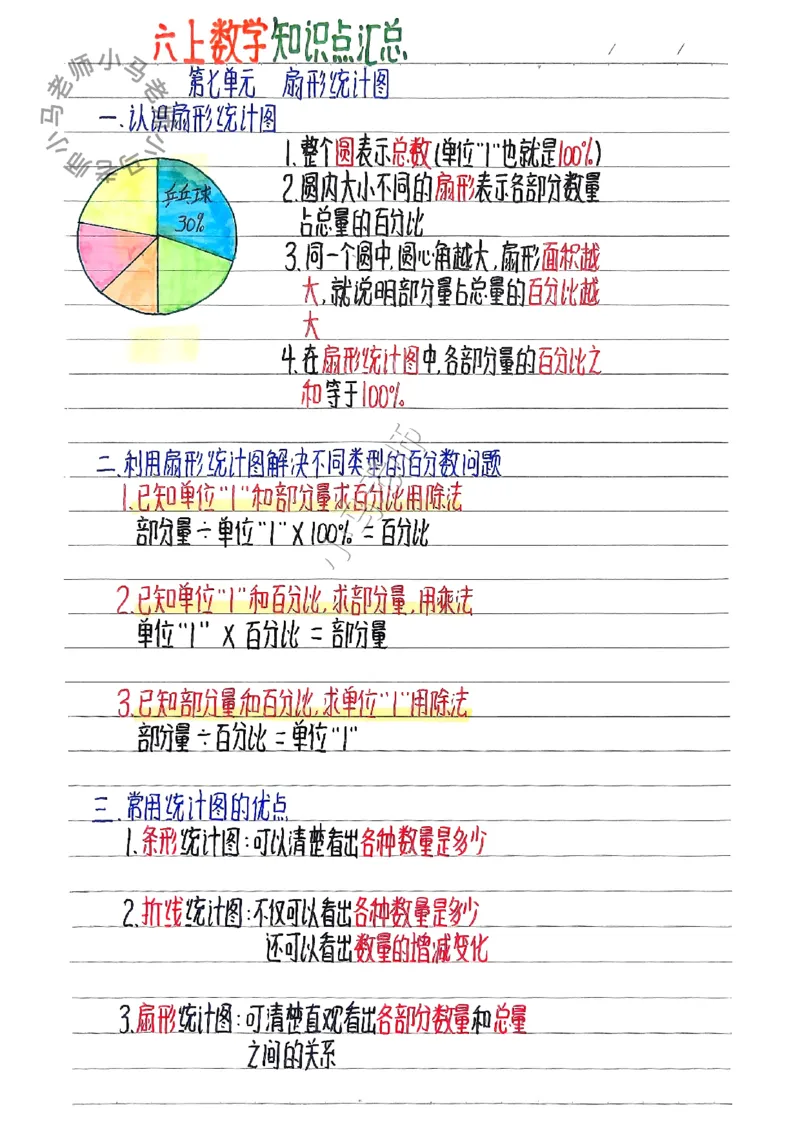 六上数学知识点汇总
第七单元 扇形统计图
一.认识扇形统计图
小马老师小马老师小马老师
乒乓球
30%
1.整个圆表示总数(单位"1"也就是100%)
2.圆内大小不同的扇形表示各部分数量
占总量的百分比
3.同一个圆中,圆心角越大,扇形面积越
大,就说明部分量占总量的百分比越
大
4.在扇形统计图中,各部分量的百分比之
和等于100%
二.利用扇形统计图解决不同类型的百分数问题
1.已知单位"1"和部分量求百分比用除法
部分量÷单位"1"×100%=百分比
小马老师
2.已知单位"1"和百分比,求部分量,用乘法
单位"1" × 百分比 = 部分量
3.已知部分量和百分比,求单位"1"用除法
部分量÷百分比=单位"1"
三.常用统计图的优点
1.条形统计图:可以清楚看出各种数量是多少
2.折线统计图:不仅可以看出各种数量是多少
还可以看出数量的增减变化
3.扇形统计图:可清楚直观看出各部分数量和总量
之间的关系